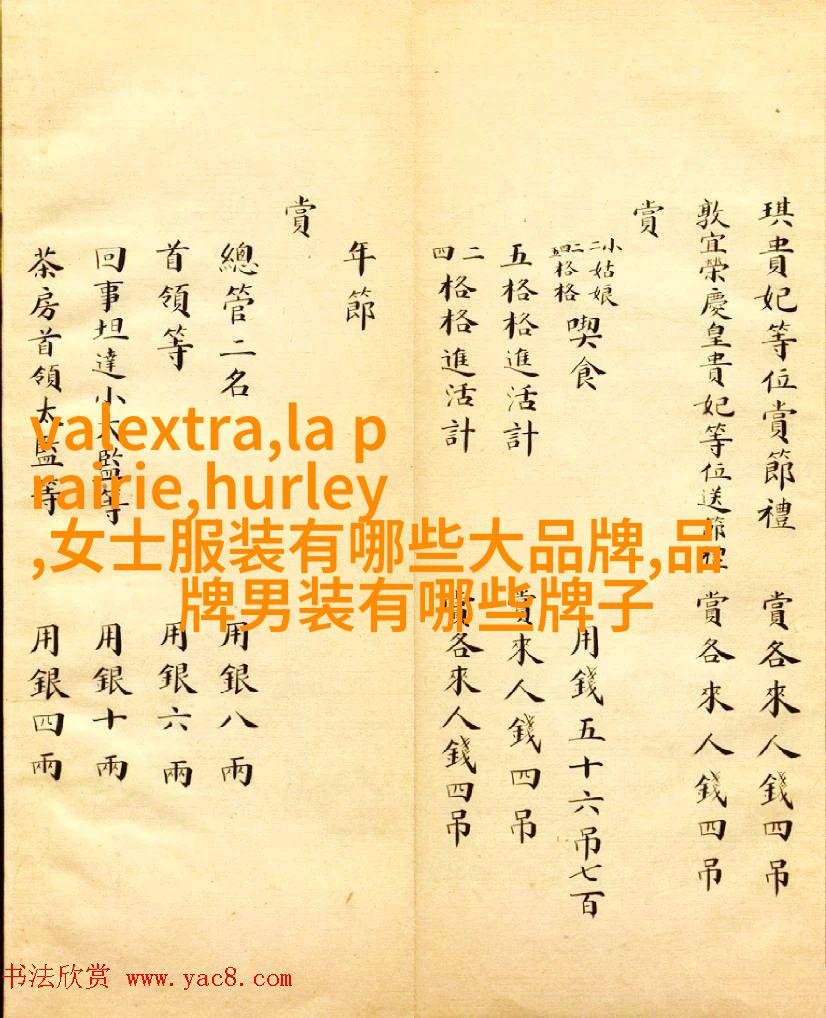 琪貴妃等位賞節禮 賞各來人錢四吊
敦宜榮慶皇貴妃等位送節禮 賞各來人錢四吊
賞
小姑娘
二
二格格
四格格
喫食 用錢五十六吊七百
五格格進活計 賞來人錢四吊
二
四
格格進活計 賞各來人錢四吊
年節
賞
總管二名 用銀八兩
首領等 用銀六兩
回事坦達小太監等 用銀十兩
茶房首領太監等 用銀四兩
valextra,la p
rairie,hurley
,女士服装有哪些大品牌,品
牌男装有哪些牌子
书法欣赏 www.yac8.com